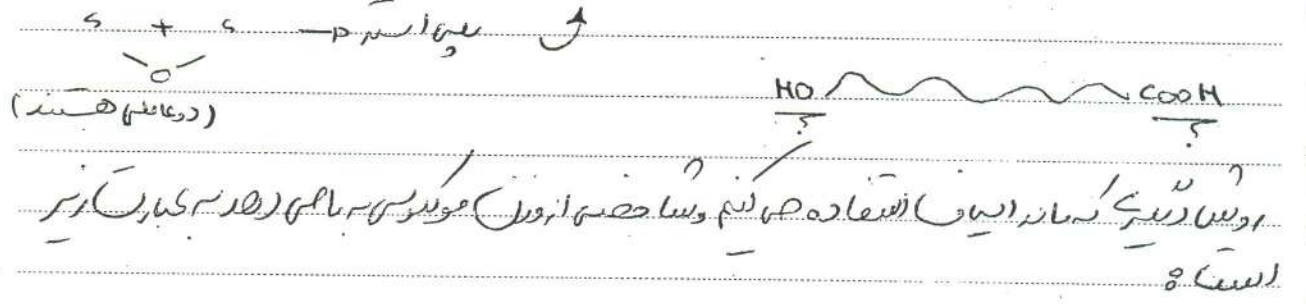 ؟ + ؟ → پلی استر
(دو عاملی هستند)
HO COOH
؟ ؟
روش دیگری که ما در الیاف استفاده می کنیم و شاخصی از وزن مولکولی به ما می دهد به عبارت زیر
است: